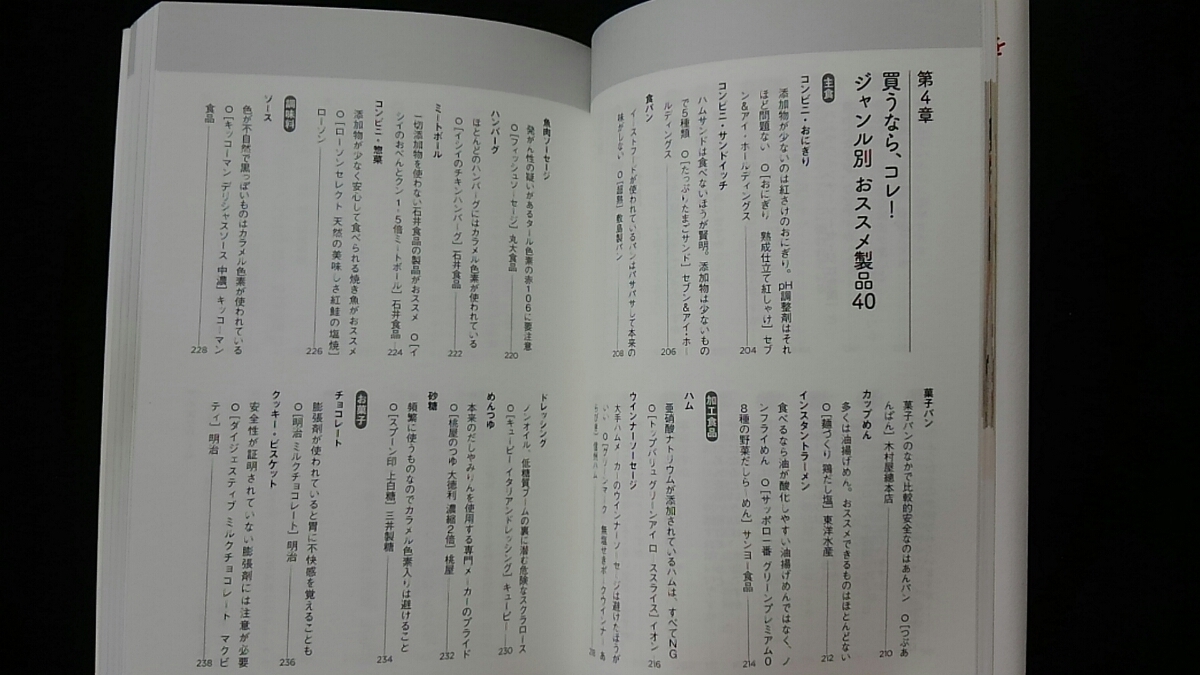 第4章
買うなら、コレ!
ジャンル別 おススメ製品40
主食
コンビニ・おにぎり
添加物が少ないのは紅さけのおにぎり。pH調整剤はそれ
ほど問題ない ○[おにぎり 熟成仕立て紅しゃけ]セブ
ン&アイ・ホールディングス
204
コンビニ・サンドイッチ
ハムサンドは食べないほうが賢明。添加物は少ないもの
で5種類 ○[たっぷりたまごサンド]セブン&アイ・ホー
ルディングス
206
食パン
イーストフードが使われているパンはパサパサして本来の
味がしない ○[超熟]敷島製パン
208
菓子パン
菓子パンのなかで比較的安全なのはあんパン ○[つぶあ
んぱん]木村屋總本店
210
カップめん
多くは油揚げめん。おススメできるものはほとんどない
○[麺づくり 鶏だし塩]東洋水産
212
インスタントラーメン
食べるなら油が酸化しやすい油揚げめんではなく、ノ
ンフライめん ○[サッポロ一番 グリーンプレミアム0
8種の野菜だしらーめん]サンヨー食品
214
加工食品
ハム
亜硝酸ナトリウムが添加されているハムは、すべてNG
○[トップバリュグリーンアイ ロースライス]イオン
216
ウインナーソーセージ
大手ハムメーカーのウインナーソーセージは避けたほうが
いい ○[グリーンマーク 無塩せきポークウインナー あ
信州ハム
魚肉ソーセージ
発がん性の疑いがあるタール色素の赤106に要注意
○[フィッシュソーセージ]丸大食品
220
ハンバーグ
ほとんどのハンバーグにはカラメル色素が使われている
○[イシイのチキンハンバーグ]石井食品
222
ミートボール
一切添加物を使わない石井食品の製品がおススメ ○[イ
シイのおべんとクン 1・5倍ミートボール]石井食品
224
コンビニ・惣菜
添加物が少なく安心して食べられる焼き魚がおススメ
○[ローソンセレクト 天然の美味しさ紅鮭の塩焼]
ローソン
226
調味料
ソース
色が不自然で黒っぽいものはカラメル色素が使われている
○[キッコーマン デリシャスソース 中濃]キッコーマン
食品
228
ドレッシング
ノンオイル、低糖質ブームの裏に潜む危険なスクラロース
○[キューピー イタリアンドレッシング]キューピー
230
めんつゆ
本来のだしやみりんを使用する専門メーカーのプライド
○[桃屋のつゆ 大徳利 濃縮2倍]桃屋
232
砂糖
頻繁に使うものなのでカラメル色素入りは避けること
○[スプーン印 上白糖]三井製糖
234
お菓子
チョコレート
膨張剤が使われていると胃に不快感を覚えることも
○[明治 ミルクチョコレート]明治
236
クッキー・ビスケット
安全性が証明されていない膨張剤には注意が必要
○[ダイジェスティブ ミルクチョコレート マクビ
ティ]明治
238